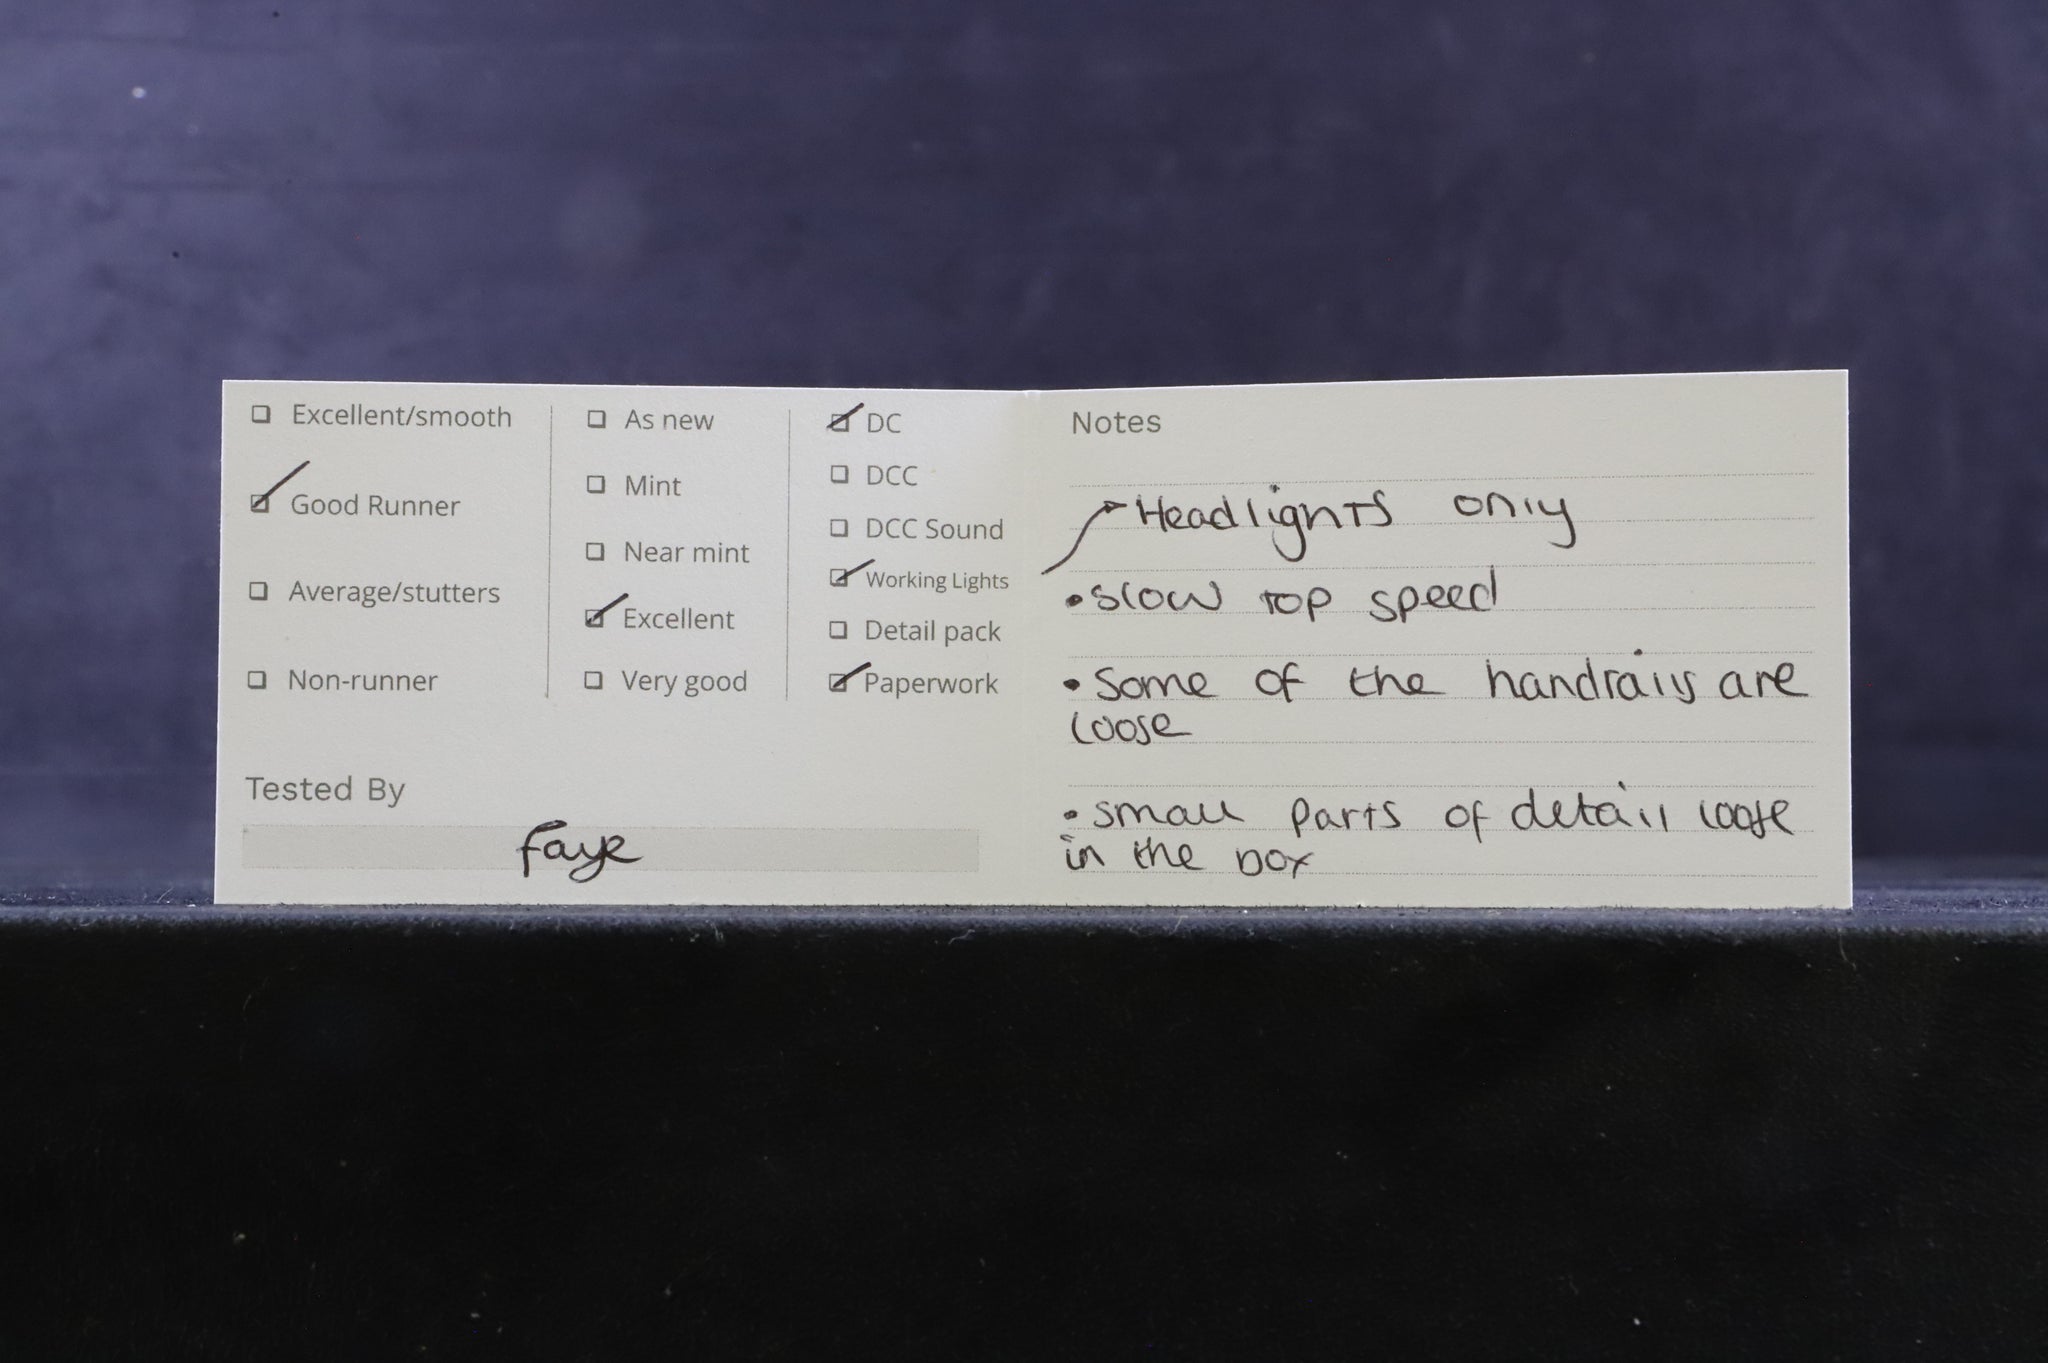 Excellent/smooth
Good Runner
Average/stutters
Non-runner
As new
Mint
Near mint
Excellent
Very good
DC
DCC
DCC Sound
Working Lights
Detail pack
Paperwork
Tested By
Faye
Notes
Headlights only
• slow top speed
• Some of the handrails are
loose
• small parts of detail loose
in the box